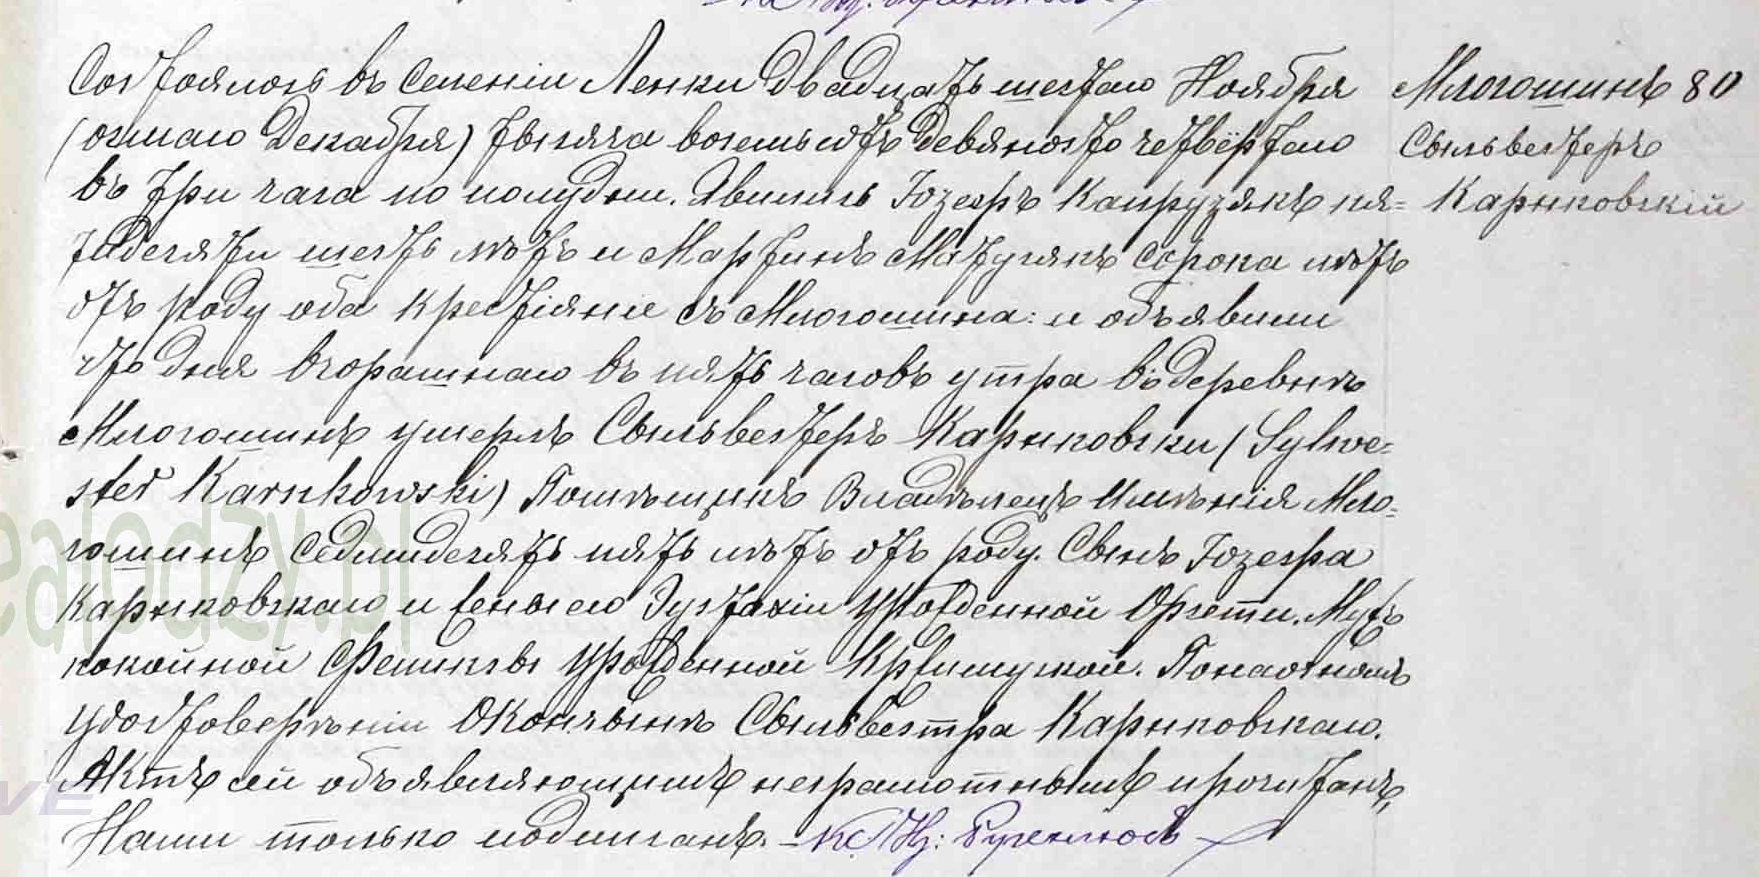 Состоялось въ селеніи Ленки двадцать шестаго Ноября
(осмаго Декабря) тысяча восемьсотъ девяносто четвёртаго
въ три часа по полудни. Явились Іозефъ Капрузякъ пя=
тьдесяти шесть лѣтъ и Мартинъ Матусякъ сорока лѣтъ
отъ роду оба крестіяніе съ Млогошина: и объявили
что дня вчорашнаго въ пять часовъ утра въ деревнѣ
Млогошинъ умерлъ Сыльвестеръ Карнковски (Sylwe=
ster Karnkowski) Помѣщикъ Владѣлецъ Имѣнія Мло=
гошинъ седмидесять пять лѣтъ отъ роду. Сынъ Іозефа
Карнковскаго и жены его Эустахіи урожденной Орсетти. Мужъ
покойной Феликсы урожденной
удостоверѣніи Окончынѣ Сыльвестра Карнковскаго.
Актъ сей объявляющимъ неграмотнымъ прочитанъ,
Нами только подписанъ.
Млогошинъ 80
Сыльвестеръ
Карнковскій